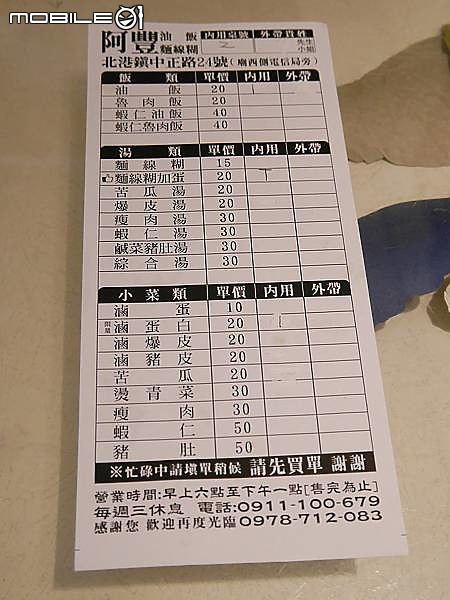 mobile01
阿豐 油飯 麵線糊 內用桌號 外帶貴姓
2 先生 小姐
北港鎮中正路24號(廟西側電信局旁)
飯類 單價 內用 外帶
油飯 20
魯肉飯 20
蝦仁油飯 40
蝦仁魯肉飯 40
湯類 單價 內用 外帶
麵線糊 15
麵線糊加蛋 20
苦瓜湯 20
爆皮湯 20
瘦肉湯 30
蝦仁湯 30
鹹菜豬肚湯 30
綜合湯 30
小菜類 單價 內用 外帶
滷蛋 10
限量 滷蛋白 20
滷爆皮 20
滷豬皮 20
苦瓜 20
燙青菜 30
瘦肉 30
蝦仁 50
豬肚 50
※忙碌中請填單稍候 請先買單 謝謝
營業時間:早上六點至下午一點[售完為止]
每週三休息 電話:0911-100-679
感謝您 歡迎再度光臨 0978-712-083